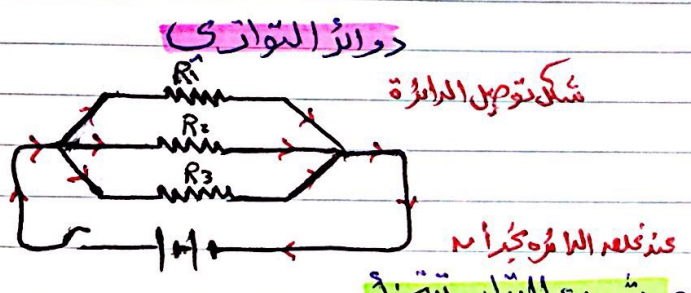 دوائر التوازى
شكل توصيل الدائرة
R1
R2
R3
عند غلق الدائرة نجد أنه